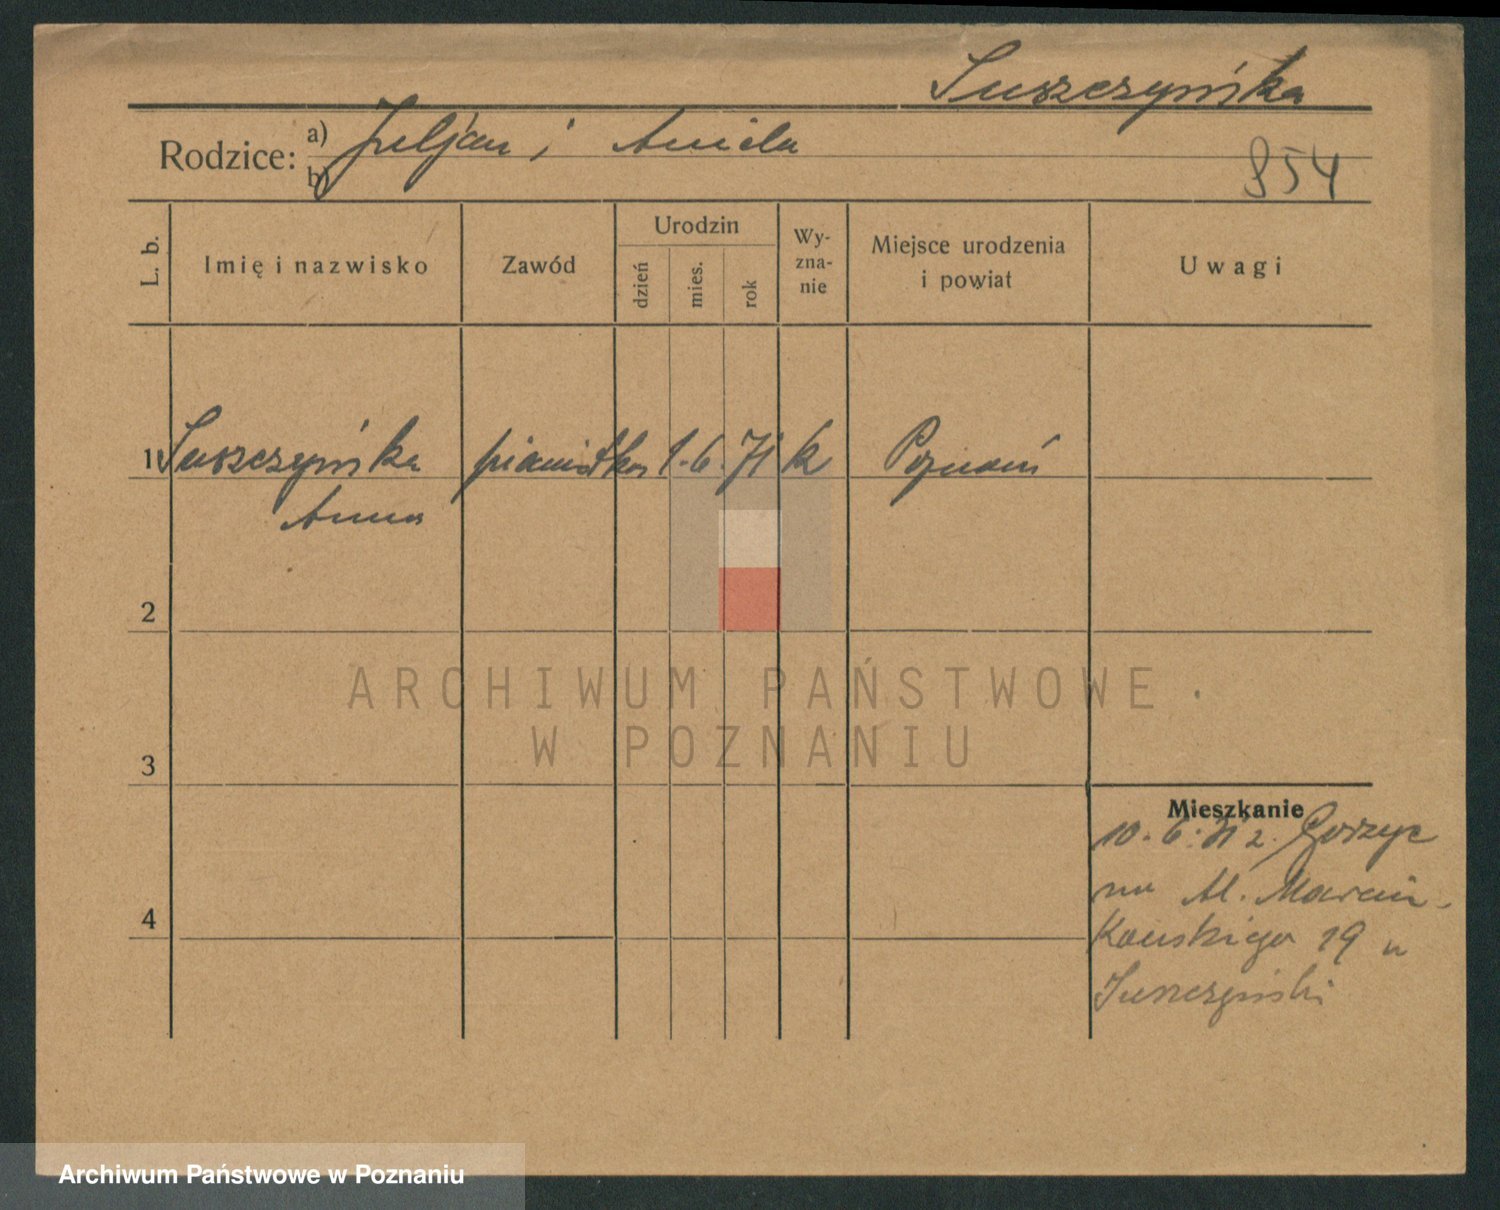 Suszczyńska
Rodzice: a) Juljan i Aniela
b)
854
L. b. Imię i nazwisko Zawód Urodzin dzień mies. rok Wy-zna-nie Miejsce urodzenia i powiat Uwagi
1 Suszczyńska pianistka 1. 6. 71 k Poznań
Anna
2
ARCHIWUM PAŃSTWOWE
W POZNANIU
3
Mieszkanie
10. 6. 31 z Gorzyc
na Al. Marcin-
kowskiego 19 u
Suszczyński
4
Archiwum Państwowe w Poznaniu